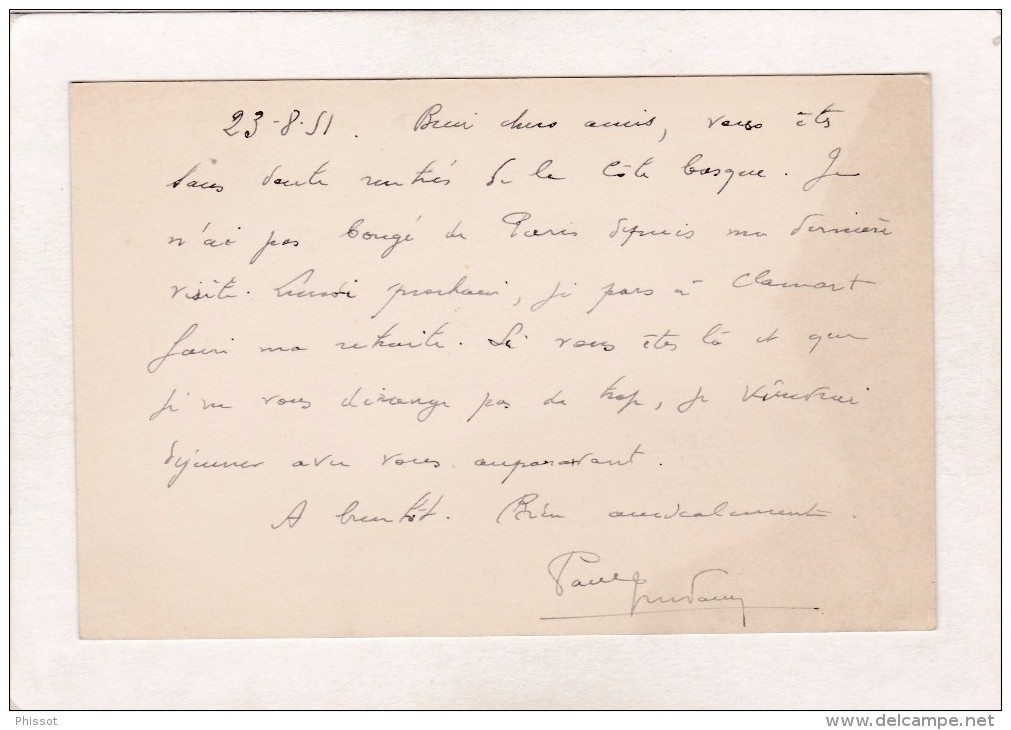 23-8-51. Bien chers amis, vous êtes
sans doute rentrés de la Côte basque. Je
n'ai pas bougé de Paris depuis ma dernière
visite. Lundi prochain, je pars à Clamart
faire ma retraite. Si vous êtes là et que
je ne vous dérange pas de trop, je viendrai
déjeuner avec vous auparavant.
A bientôt. Bien amicalement.
Paul
Phissot
delcampe.net